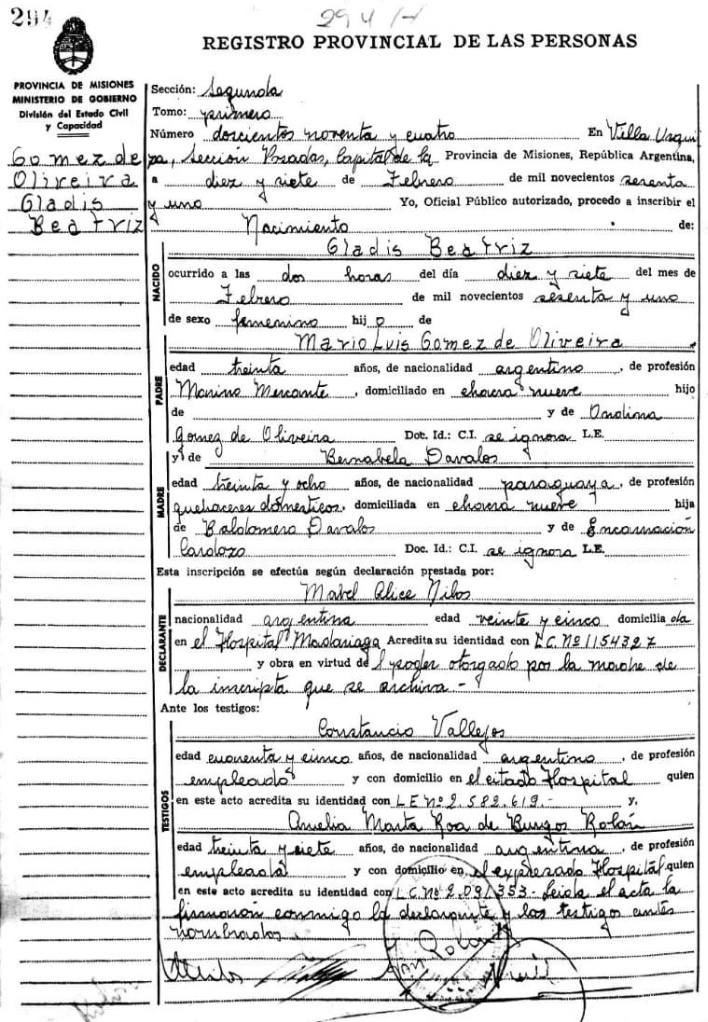 294
294
REGISTRO PROVINCIAL DE LAS PERSONAS
PROVINCIA DE MISIONES
MINISTERIO DE GOBIERNO
División del Estado Civil
y Capacidad
Gomez de
Oliveira
Gladis
Beatriz
Sección: Segunda
Tomo: primero
Número dorcientos noventa y cuatro En Villa Urqui
za, Sección Posadas, Capital de la Provincia de Misiones, República Argentina,
a diez y siete de Febrero de mil novecientos sesenta
y uno Yo, Oficial Público autorizado, procedo a inscribir el
Nacimiento de:
NACIDO
Gladis Beatriz
ocurrido a las dos horas del día diez y siete del mes de
Febrero de mil novecientos sesenta y uno
de sexo femenino hij o de
PADRE
Mario Luis Gomez de Oliveira
edad treinta años, de nacionalidad argentino, de profesión
Marino Mercante, domiciliado en chacra nueve hijo
de y de Ondina
Gomez de Oliveira Doc. Id.: C.I. se ignora L.E.
MADRE
y de Bernabela Davalos
edad treinta y ocho años, de nacionalidad paraguaya, de profesión
quehaceres domesticos, domiciliada en chacra nueve hija
de Baldomero Davalos y de Encarnación
Cardozo Doc. Id.: C.I. se ignora L.E.
Esta inscripción se efectúa según declaración prestada por:
DECLARANTE
Mabel Alice
nacionalidad argentina edad veinte y cinco domicilia da
en el Hospital Madariaga Acredita su identidad con L.C. Nº 1154327
y obra en virtud del poder otorgado por la madre de
la inscripta que se archiva.-
Ante los testigos:
TESTIGOS
Constancio Vallejos
edad cuarenta y cinco años, de nacionalidad argentino, de profesión
empleado y con domicilio en el citado Hospital quien
en este acto acredita su identidad con L E Nº 2.582.619.- y,
Amelia Marta Roa de Burgos Rolón
edad treinta y siete años, de nacionalidad argentina, de profesión
empleada y con domicilio en el expresado Hospital quien
en este acto acredita su identidad con L C Nº 2.091353- Leida el acta la
firmaron conmigo la declarante y los testigo antes
nombrados.